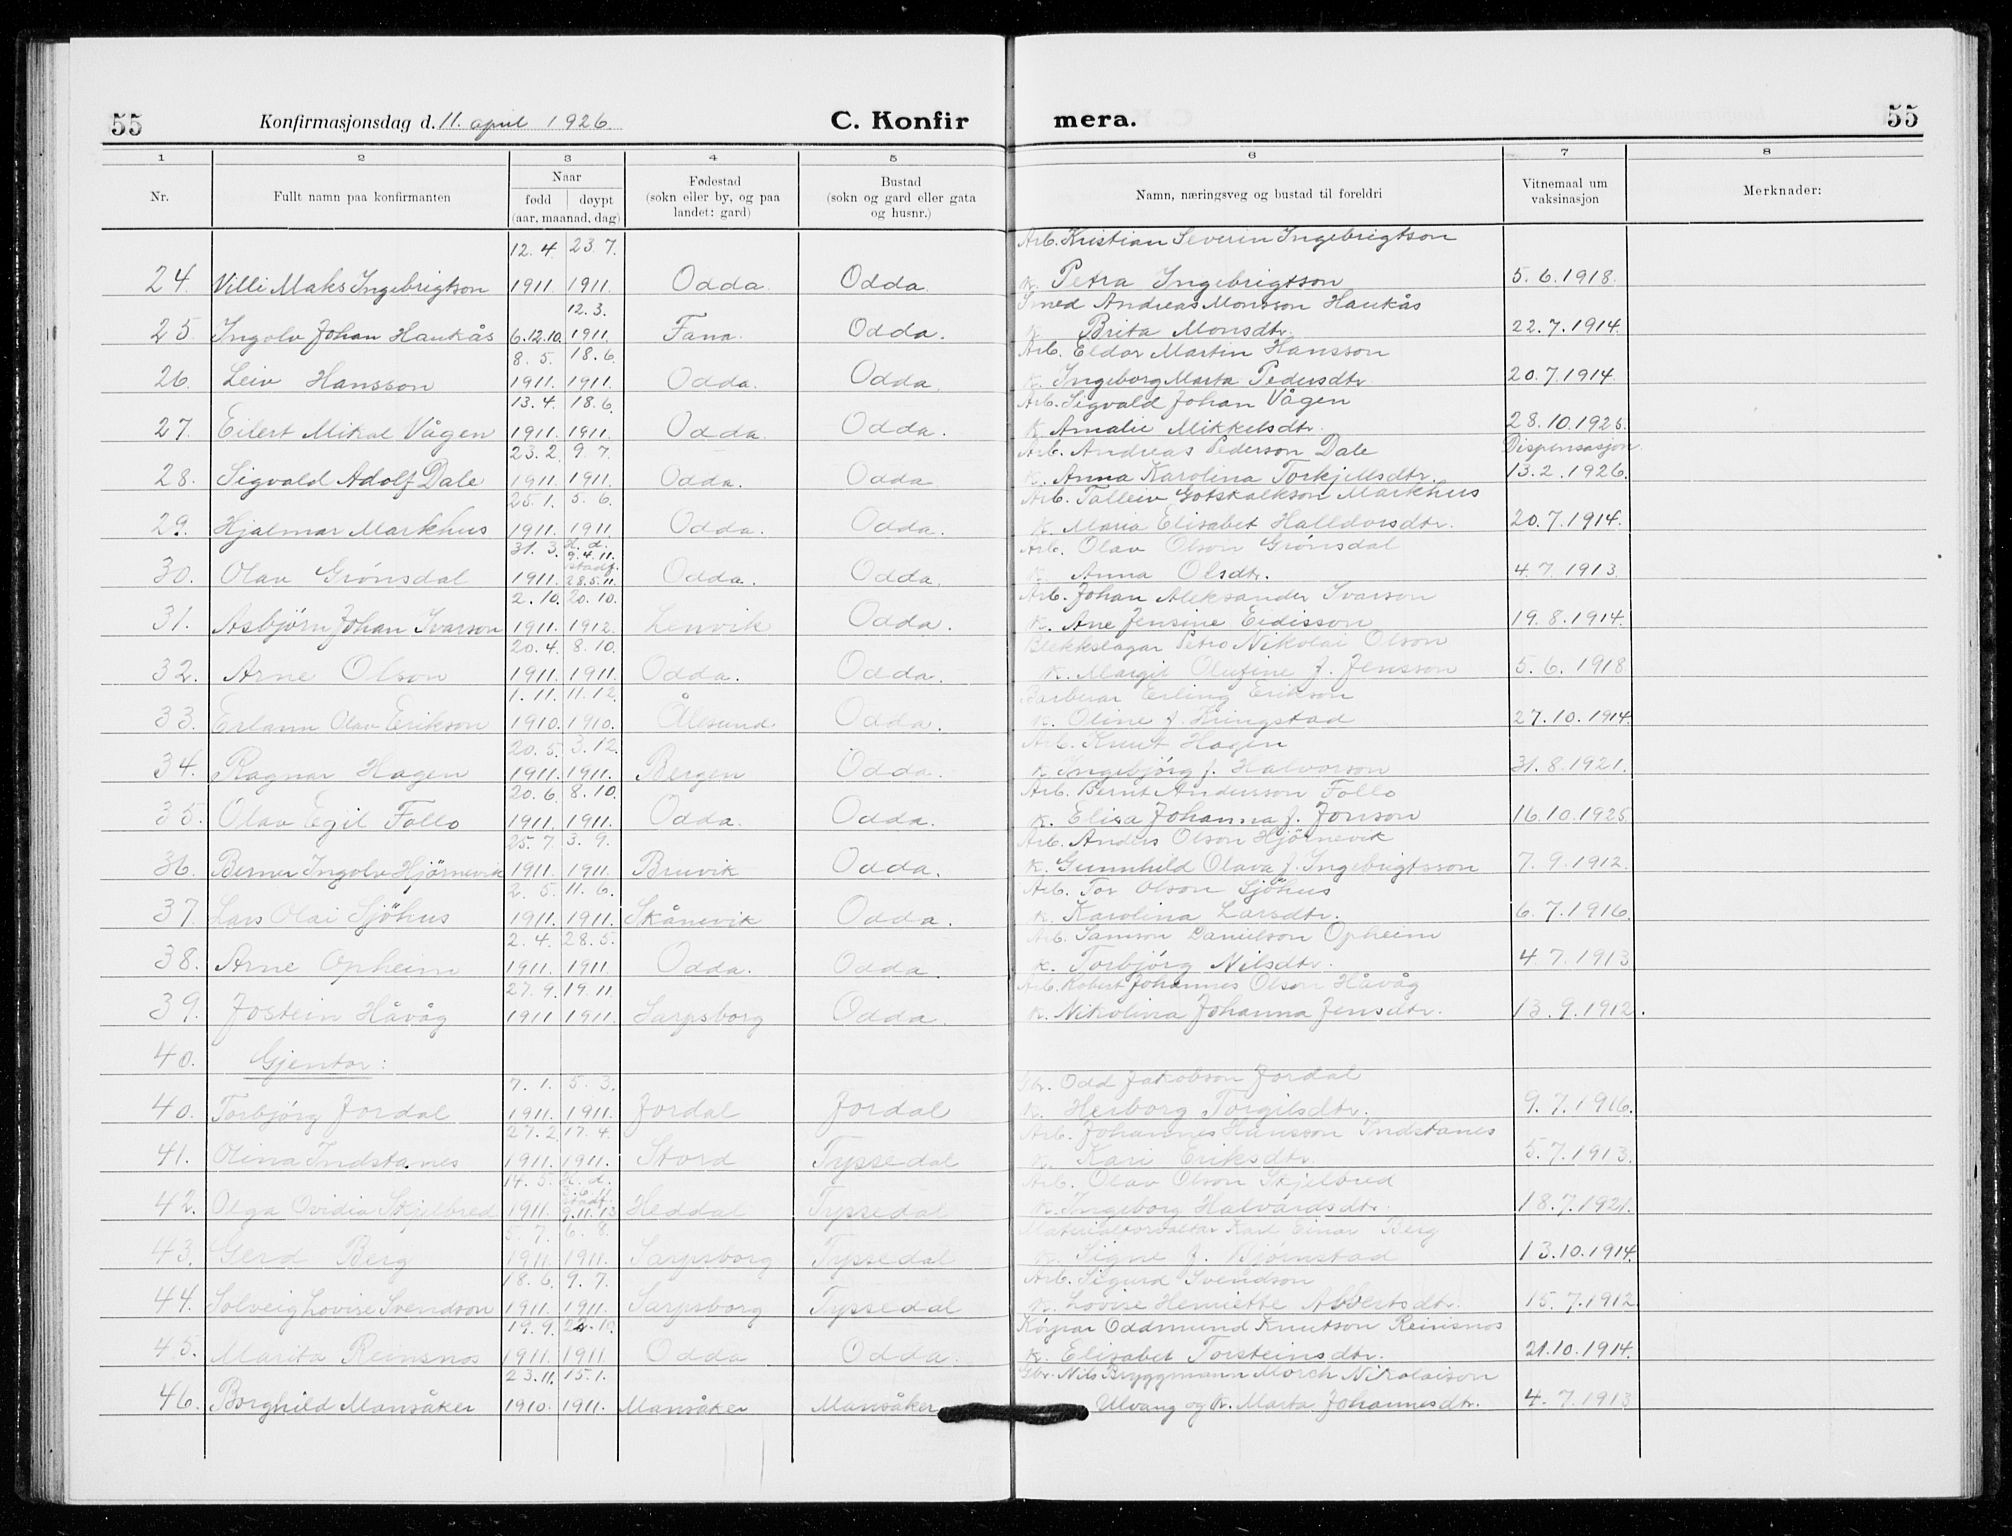 55 Konfirmasjonsdag d. 11. april 1926. C. Konfir mera. 55
1 2 3 4 5 6 7 8
Nr. Fullt namn paa konfirmanten Naar født døypt (aar, maanad, dag) Fødestad (sokn eller by, og paa landet: gard) Bustad (sokn og gard eller gata og husnr.) Namn, næringsveg og bustad til foreldri Vitnemaal um vaksinasjon Merknader:
12. 4. 23. 7. Arb. Kristian Severin Ingebrigtson
24. Villi Maks Ingebrigtson 1911. 1911. Odda. Odda. K. Petra Ingebrigtson 5. 6. 1918.
12. 3. Smed Andreas Monsson Haukås
25. Ingolv Johan Haukås 6.12.10. 1911. Fana. Odda. K. Brita Monsdtr. 22. 7. 1914.
8. 5. 18. 6. Arb. Eldar Martin Hansson
26. Leiv Hansson 1911. 1911. Odda. Odda. K. Ingeborg Marta Pedersdtr. 20. 7. 1914.
13. 4. 18. 6. Arb. Sigvald Johan Vågen
27. Eilert Mikal Vågen 1911. 1911. Odda. Odda. K. Amalie Mikkelsdtr. 28. 10. 1925.
23. 2. 9. 7. Arb. Andreas Pederson Dale Dispensasjon
28. Sigvald Adolf Dale 1911. 1911. Odda. Odda K. Anna Karolina Torkjellsdtr. 13. 2. 1926.
25. 1. 5. 6. Arb. Talleiv Gotskalkson Markhus
29. Hjalmar Markhus 1911. 1911. Odda. Odda. K. Maria Elisabet Halldorsdtr. 20. 7. 1914.
31. 3. H. d. 9. 4. 11. Arb. Olav Olson Grönsdal
30. Olav Grönsdal 1911. stadf. 28. 5. 11. Odda. Odda. K. Anna Olsdtr. 4. 7. 1913.
2. 10. 20. 10. Arb. Johan Aleksander Ivarson
31. Asbjørn Johan Ivarson 1911. 1912. Lenvik Odda. K. Ane Jensine Eidisson 19. 8. 1914.
20. 4. 8. 10. Blekkslagar Petro Nikolai Olson
32. Arne Olson 1911. 1911. Odda. Odda. K. Margit Olufine f. Jensson 5. 6. 1918
1. 11. 11. 12. Barberar Erling Erikson
33. Erlann Olav Erikson 1910. 1910. Ålesund Odda. K. Oline f. Kringstad 27. 10. 1914.
20. 5. 3. 12. Arb. Knut Hagen
34. Ragnar Hagen 1911. 1911. Bergen Odda. K. Ingebjörg f. Halvorson 31. 8. 1921.
20. 6. 8. 10. Arb. Bernt Andersson Follo
35. Olav Egil Follo 1911. 1911. Odda. Odda. K. Elisa Johanna f. Jonson 16. 10. 1925.
25. 7. 3. 9. Arb. Anders Olson Hjörnevik
36. Berner Ingolv Hjörnevik 1911. 1911. Bruvik Odda. K. Gunnhild Olava f. Ingebrigtsson 7. 9. 1912.
2. 5. 11. 6. Arb. Tor Olson Sjöhus
37. Lars Olai Sjöhus 1911. 1911. Skånevik Odda. K. Karolina Larsdtr. 6. 7. 1916.
2. 4. 28. 5. Arb. Samson Danielson Opheim
38. Arne Opheim 1911. 1911. Odda. Odda. K. Torbjörg Nilsdtr. 4. 7. 1913
27. 9. 19. 11. Arb. Robert Johannes Olson Håvåg
39. Jostein Håvåg 1911. 1911. Sarpsborg Odda. K. Nikolina Johanna Jensdtr. 13. 9. 1912.
40. Gjentor:
7. 1. 5. 3. Gbr. Odd Jakobson Jordal
40. Torbjörg Jordal 1911. 1911. Jordal Jordal K. Herborg Torgilsdtr. 9. 7. 1916.
27. 2. 17. 4. Arb. Johannes Hansson Indstanes
41. Olina Indstanes 1911. 1911. Stord Tyssedal K. Kari Eriksdtr. 5. 7. 1913.
14. 5. H. d. Arb. Olav Olson Skjelbred
42. Olga Ovidia Skjelbred 1911. stadf. 9. 11. 13 Heddal Tyssedal K. Ingeborg Halvardsdtr. 18. 7. 1921.
5. 7. 6. 8. Materialforvaltar Karl Einar Berg
43. Gerd Berg 1911. 1911. Sarpsborg Tyssedal K. Signe f. Björnstad 13. 10. 1914.
18. 6. 9. 7. Arb. Sigurd Svendson
44. Solveig Lovise Svendson 1911. 1911. Sarpsborg Tyssedal K. Lovise Henriette Albertsdtr. 15. 7. 1912.
19. 9. 22. 10. Köyrar Oddmund Knutson Reinsnos
45. Marita Reinsnos 1911. 1911 Odda Odda. K. Elisabet Torsteinsdtr. 21. 10. 1914.
23. 11. 15. 1. Gbr. Nils Bryggmann Morch Nikolaison
46. Borghild Mansåker 1910. 1911. Mansåker Mansåker Ulvang og K. Marta Johannesdtr. 4. 7. 1913